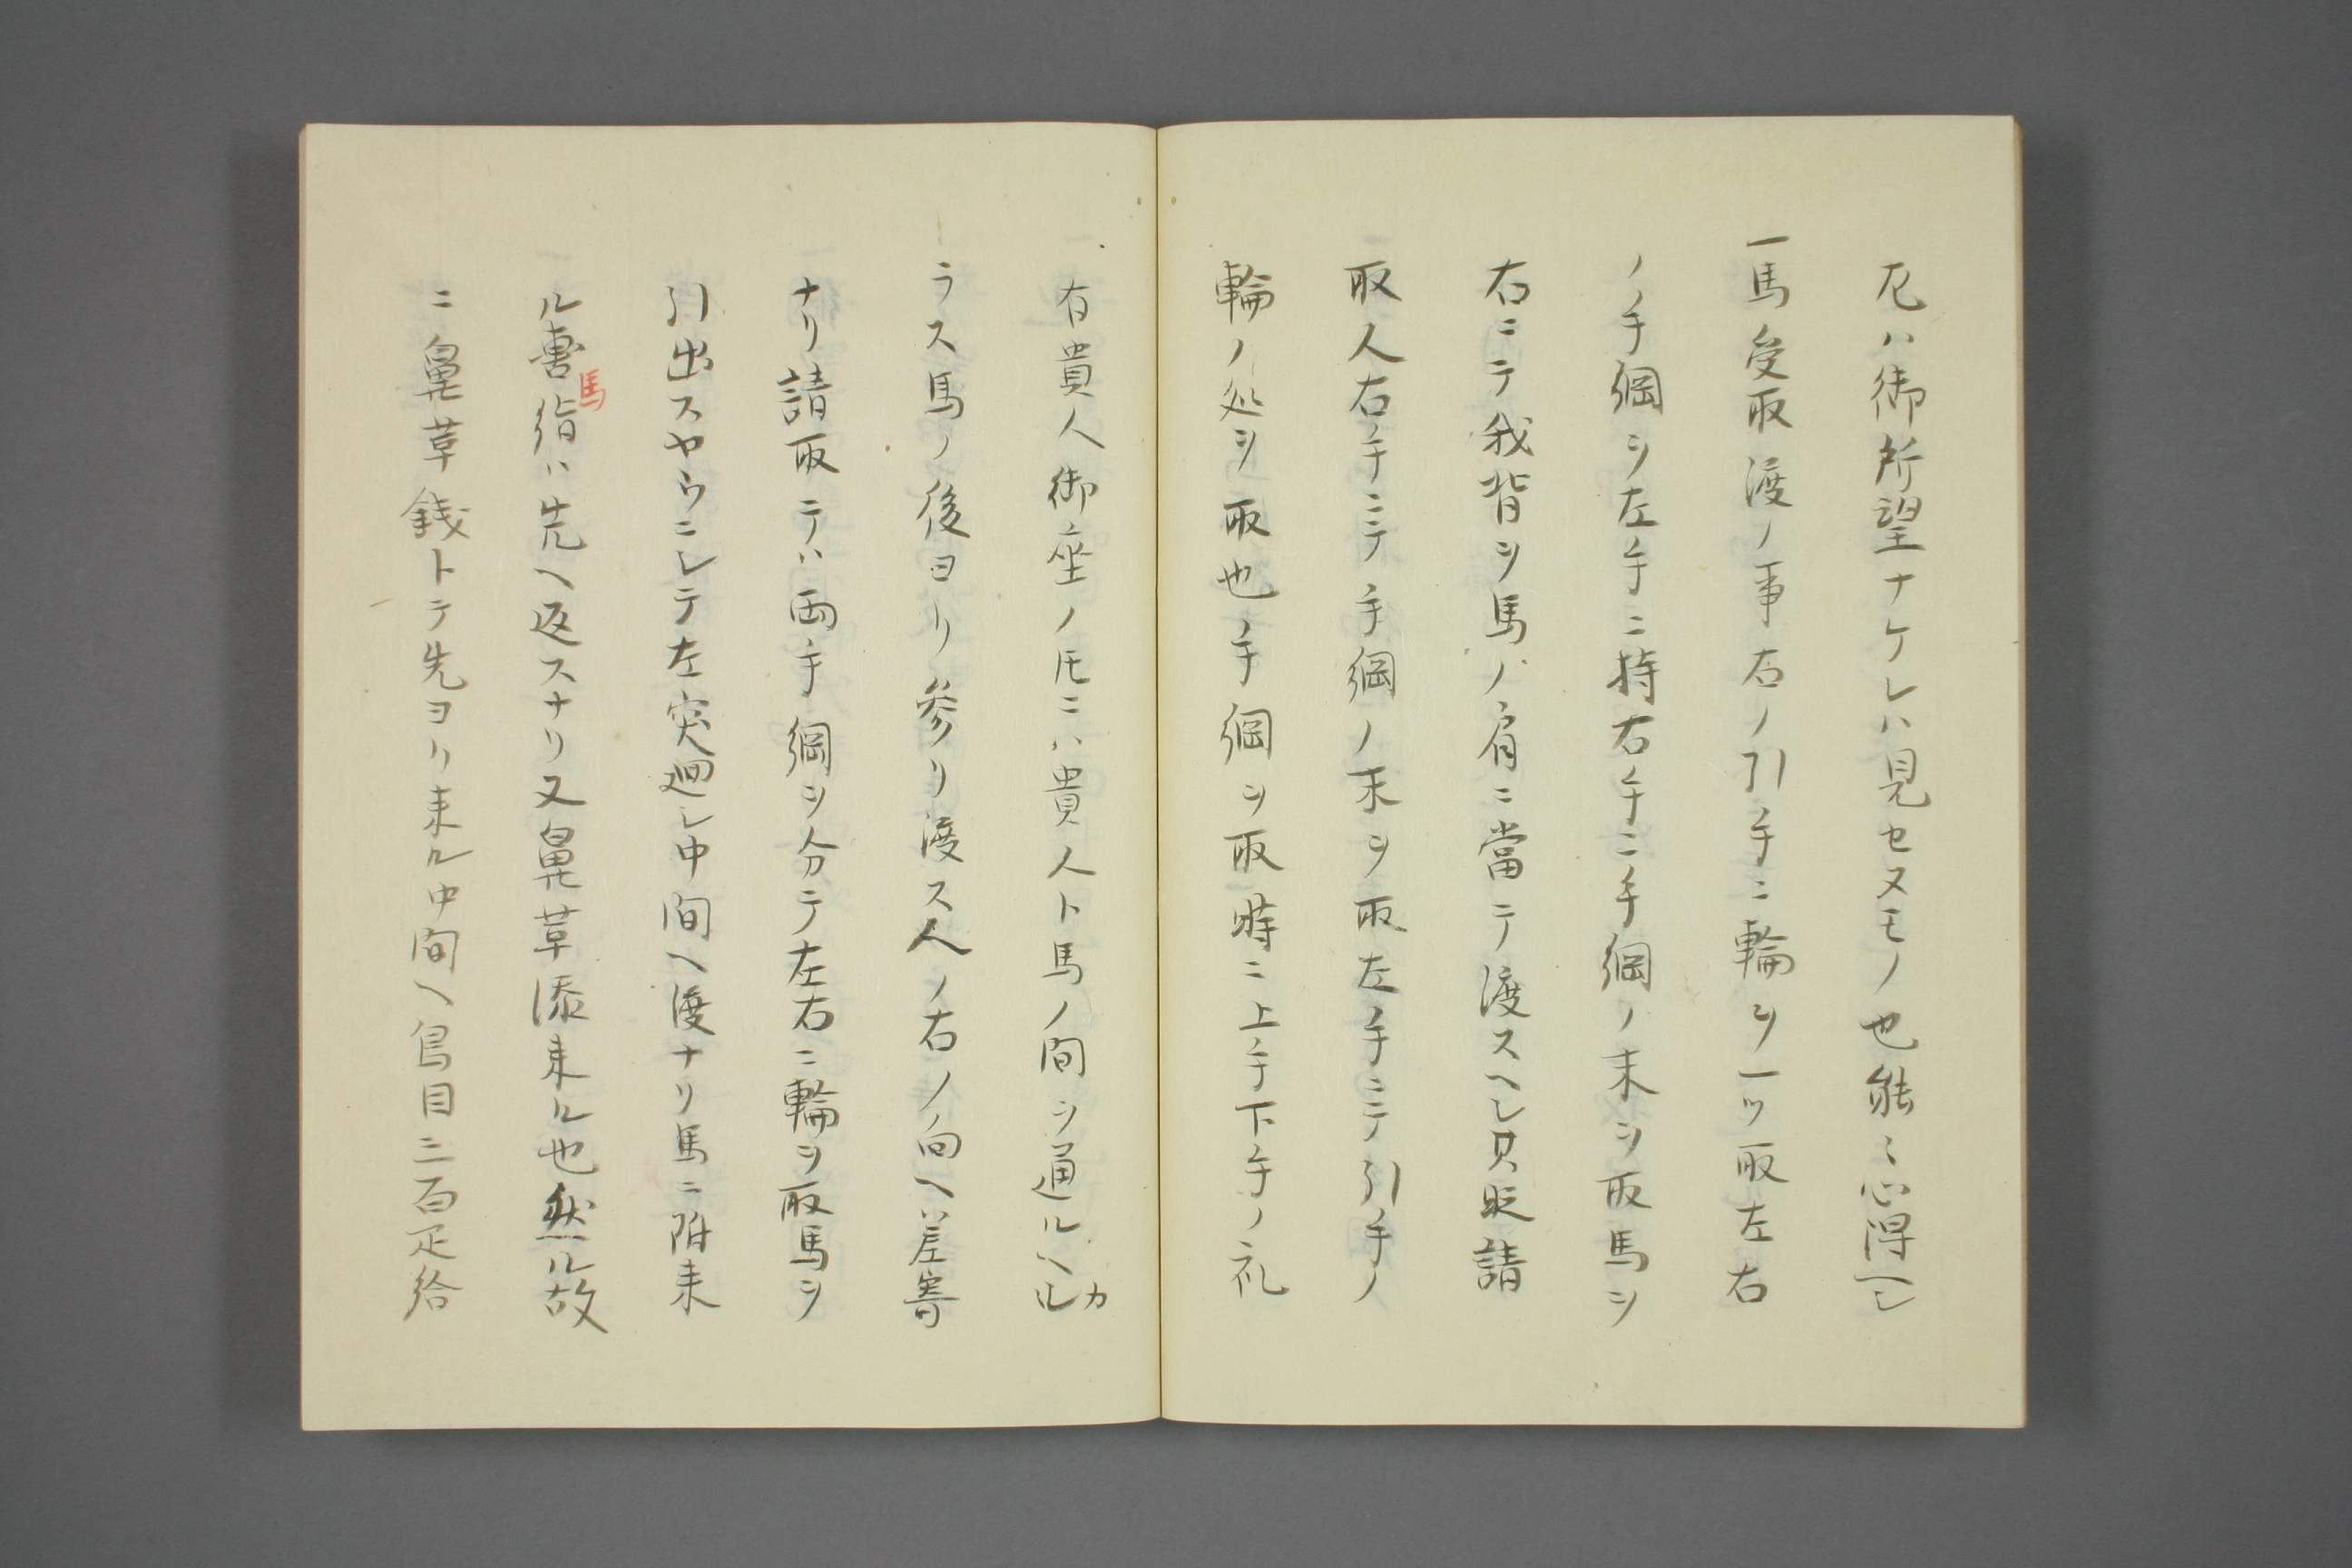 𪜈ハ御所望ナケレハ見セヌモノ也能〻心得ヘシ
一馬受取渡ノ事右ノ引手ニ輪ヲ一ツ取左右
ノ手綱ヲ左手ニ持右手ニ手綱ノ末ヲ取馬ヲ
右ニテ我背ヲ馬ノ肩ニ當テ渡スヘシ只貶請
取人右手ニテ手綱ノ末ヲ取左手ニテ引手ノ
輪ノ処ヲ取也手綱ヲ取時ニ上手下手ノ礼
有貴人御座ノ𪜈ニハ貴人ト馬ノ間ヲ通ルヘカ
ラス馬ノ後ヨリ参リ渡ス人ノ右ノ向ヘ差寄
ナリ請取テハ両手綱ヲ分テ左右ニ輪ヲ取馬ヲ
引出スヤウニシテ左突廻シ中間ヘ渡ナリ馬ニ附来
ル轡
馬
ハ先ヘ返スナリ又鼻草添来ル也然ル故
ニ鼻草銭トテ先ヨリ来ル中間ヘ鳥目三百疋給